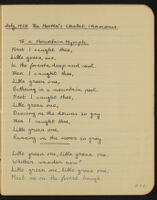 July, 1928 The Hostel, Chatel,
To a Mountain Nymph.
First I caught thee,
Little green one,
In the forests, deep and vast.
Then I caught thee,
Little green one,
Bathing in a mountain pool.
Next I caught thee,
Little green one,
Dancing in the downs so gay
Then I caught thee,
Little green one,
Running on the moors so grey
Little green one, little green one,
Whither wander now?
Little green one, little green one,
Meet me on the forest bough.